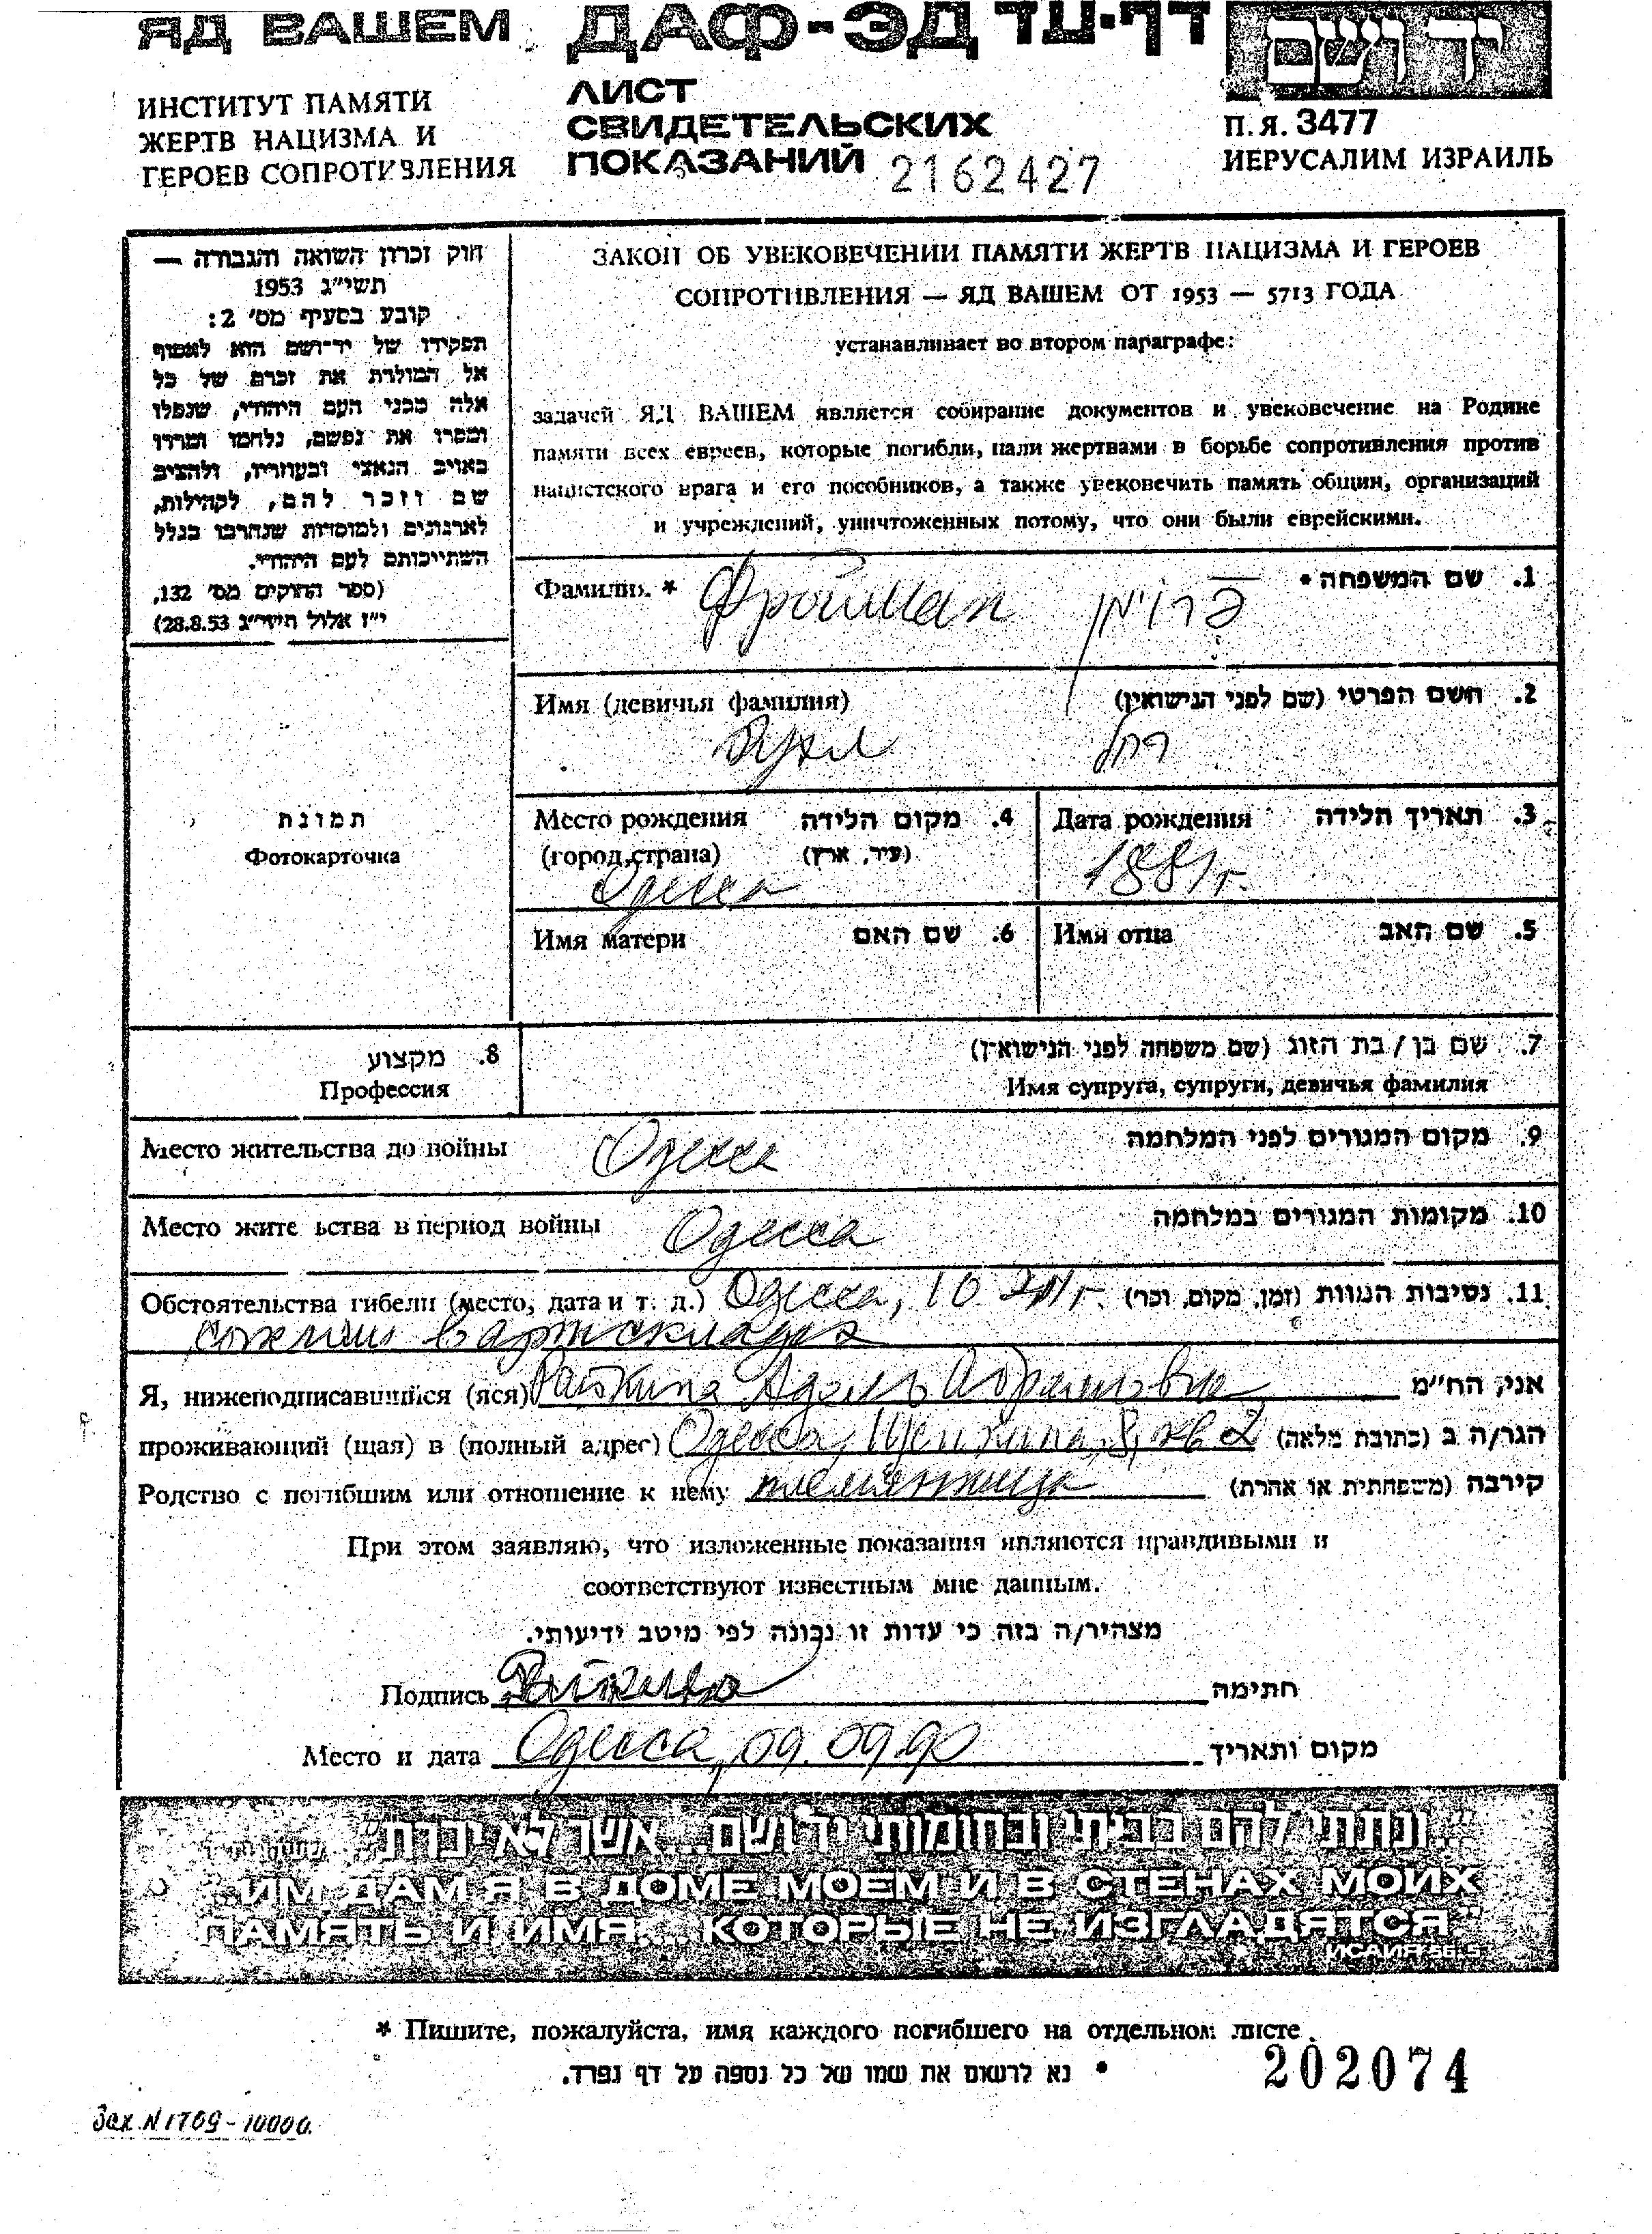 ЯД ВАШЕМ
ИНСТИТУТ ПАМЯТИ
ЖЕРТВ НАЦИЗМА И
ГЕРОЕВ СОПРОТИВЛЕНИЯ
ДАФ-ЭД דף-עד
ЛИСТ
СВИДЕТЕЛЬСКИХ
ПОКАЗАНИЙ 2162427
יד ושם
П.Я. 3477
ИЕРУСАЛИМ ИЗРАИЛЬ
חוק זכרון השואה והגבורה —
תשי״ג 1953
קובע בסעיף מס׳ 2:
תפקידו של יד־ושם הוא לאסוף
אל המולדת את זכרם של כל
אלה מבני העם היהודי, שנפלו
ומסרו את נפשם, נלחמו ומרדו
באויב הנאצי ובעוזריו, ולהציב
שם וזכר להם, לקהילות,
לארגונים ולמוסדות שנחרבו בגלל
השתייכותם לעם היהודי.
(ספר החוקים מס׳ 132,
י״ז אלול תשי״ג 28.8.53)
ЗАКОН ОБ УВЕКОВЕЧЕНИИ ПАМЯТИ ЖЕРТВ НАЦИЗМА И ГЕРОЕВ
СОПРОТИВЛЕНИЯ — ЯД ВАШЕМ ОТ 1953 — 5713 ГОДА
устанавливает во втором параграфе:
задачей ЯД ВАШЕМ является собирание документов и увековечение на Родине
памяти всех евреев, которые погибли, пали жертвами в борьбе сопротивления против
нацистского врага и его пособников, а также увековечить память общин, организаций
и учреждений, уничтоженных потому, что они были еврейскими.
Фамилия * Фройман פרוימן 1. שם המשפחה *
Имя (девичья фамилия) 2. השם הפרטי (שם לפני הנישואין)
Рухл רחל
תמונת
Фотокарточка
Место рождения 4. מקום הלידה
(город, страна) (עיר, ארץ)
Одесса
Дата рождения 3. תאריך הלידה
1881 г.
Имя матери 6. שם האם
Имя отца 5. שם האב
8. מקצוע
Профессия
7. שם בן / בת הזוג (שם משפחה לפני הנישואין)
Имя супруга, супруги, девичья фамилия
Место жительства до войны Одесса 9. מקום המגורים לפני המלחמה
Место жите ьства в период войны Одесса 10. מקומות המגורים במלחמה
Обстоятельства гибели (место, дата и т. д.) Одесса, 10. 41 г. 11. נסיבות המוות (זמן, מקום, וכו׳)
сожгли в артскладах
Я, нижеподписавшийся (яся) Райкина Адель Абрамовна אני, הח״מ
проживающий (щая) в (полный адрес) Одесса, Щепкина, 8, кв 2 הגר/ה ב (כתובת מלאה)
Родство с погибшим или отношение к нему племянница קירבה (משפחתית או אחרת)
При этом заявляю, что изложенные показания являются правдивыми и
соответствуют известным мне данным.
מצהיר/ה בזה כי עדות זו נכונה לפי מיטב ידיעותי.
Подпись Райкина חתימה
Место и дата Одесса, 09.09.90 מקום ותאריך
"ונתתי להם בביתי ובחומותי יד ושם... אשר לא יכרת"
"ИМ ДАМ Я В ДОМЕ МОЕМ И В СТЕНАХ МОИХ
ПАМЯТЬ И ИМЯ... КОТОРЫЕ НЕ ИЗГЛАДЯТСЯ"
ИСАИЯ 56,5
* Пишите, пожалуйста, имя каждого погибшего на отдельном листе
* נא לרשום את שמו של כל נספה על דף נפרד.
202074
Зак. N 1709 - 10000.